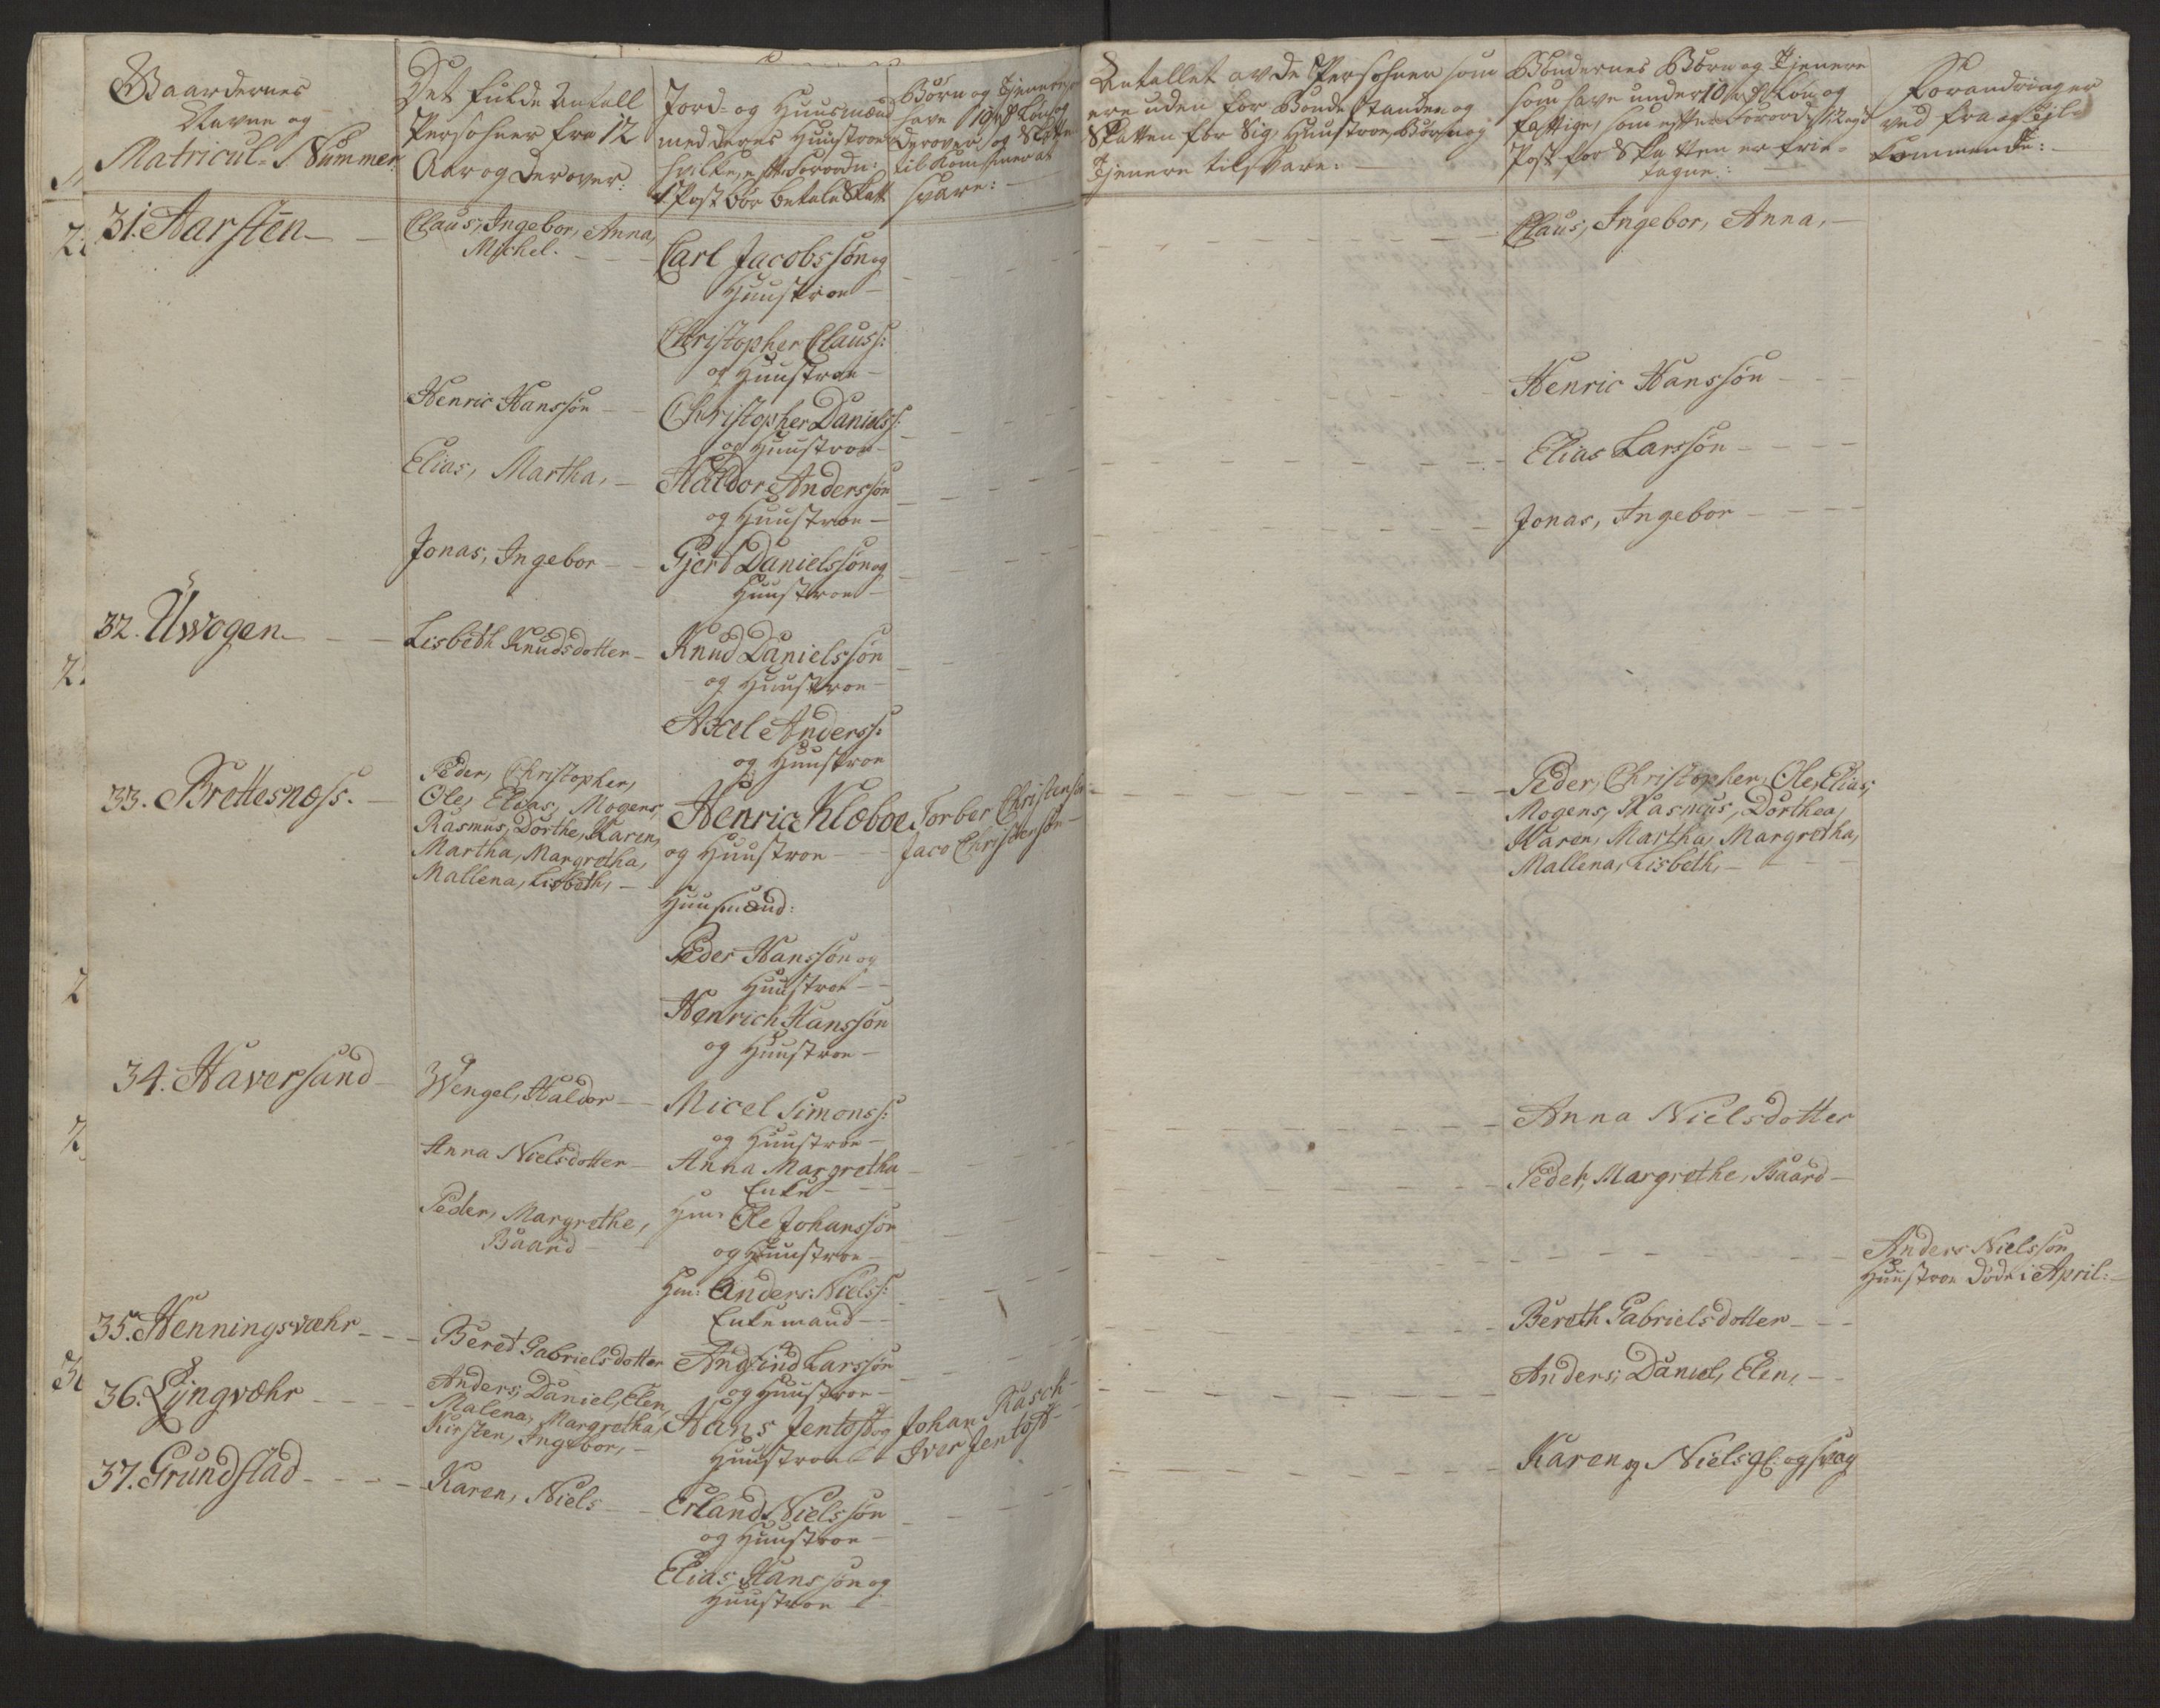 Gaardernes
Navne og
Matricul. Nummer.
Det fulde Antall
Persohner fra 12
Aar og derover:
Jord- og Huusmænd
med deres Huustroer
hvilke, efter Forordn:
1 Post bør betale Skatt
Børn og Tjenere,
have 10 rd Løn og
derover, og Skatte
til Kommer at
svare:
Antallet av de Persohner som
ere uden for Bonde Standen og
Skatten for Sig, Huustroe, Børn og
Tjenere tilsvare:
Bøndernes Børn og Tjenere
som have under 10 rd Løn, og
fattige, som efter Forordn
Post for Skatten er frie-
tagne:
Forandringer
ved fra og Til-
kommende:
31. Aarsten
Claus, Ingebor, Anna,
Michel.
Carl Jacobssøn og
Huustroe
Claus, Ingebor, Anna,
Christopher Clauss:
og Huustroe
Henric Hanssøn
Christopher Daniels:
og Huustroe
Henric Hanssøn
Elias, Martha,
Haldor Anderssøn
og Huustroe
Elias Larssøn
Jonas, Ingebor
Gjerd Danielssøn og
Huustroe
Jonas, Ingebor
32. Uwogen
Lisbeth Knudsdotter
Knud Danielssøn
og Huustroe
Axel Anderss:
og Huustroe
33. Brettesnæss.
Peder, Christopher,
Ole, Elias, Mogens,
Rasmus, Dorthe, Karen,
Martha, Margretha,
Mallena, Lisbeth,
Henric Klæboe
og Huustroe
Torber Christensøn
Jaco Christensøn
Peder, Christopher, Ole, Elias,
Mogens, Rasmus, Dorthea,
Karen, Martha, Margretha,
Mallena, Lisbeth,
Huusmænd:
Peder Hanssøn og
Huustroe
Henrich Hanssøn
og Huustroe
34. Haversand
Wengel, Haldor
Micel Simonss:
og Huustroe
Anna Nielsdotter
Anna Nielsdotter
Anna Margretha
Enke
Peder, Margrethe, Baard
Peder, Margrethe,
Baard
Hm: Ole Johanssøn
og Huustroe
Hm: Anders Nielss:
Enkemand
Anders Nielssøn
Huustroe døde i April:
35. Henningsværhr
Beret Gabrielsdotter
Larssøn
og Huustroe
Bereth Gabrielsdotter
36. Lyngværhr
Anders, Daniel, Elen,
Malena, Margretha,
Kirsten, Ingebor,
Hans Jentoft og
Huustroe
Johan Rasch
Iver Jentoft
Anders, Daniel, Elen,
37. Grundstad
Karen, Niels
Erland Nielssøn
og Huustroe
Karen og Niels gl. og svag
Elias Hanssøn og
Huustroe